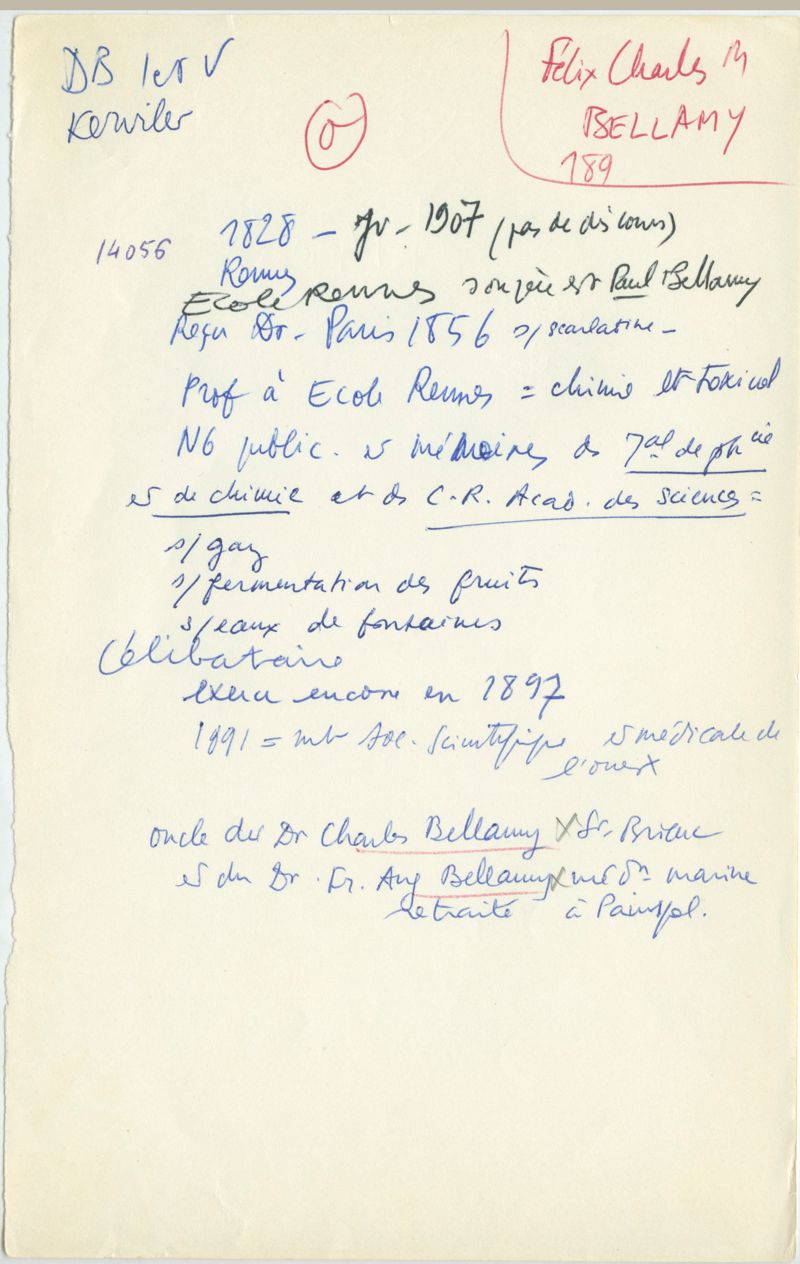 DB 1 et V
Kerviler
Félix Charles M
BELLAMY
189
14056
1828 - Jr - 1907 (pas de discours)
Rennes
Ecole Rennes son père est Paul Bellamy
Reçu Dr - Paris 1856 s/ scarlatine -
Prof à Ecole Rennes = chimie et toxicol
NB public. et mémoires ds Jal de phcie
et de chimie et ds C.R. Acad. des sciences =
s/ gaz
s/ fermentation des fruits
s/ eaux de fontaines
Célibataire
exerce encore en 1897
1891 = mb Soc. Scientifique et médicale de
l'ouest
oncle du Dr Charles Bellamy X St-Brieuc
et du Dr. Fr. Aug Bellamy X méd marine
retraité à Paimpol.